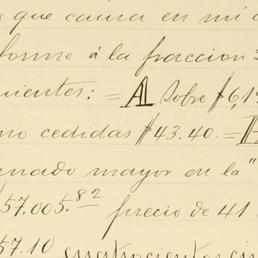 que causa en mi
forme á la fraccion
uientes: = A sobre $6,1
no cedidas $43.40. =
anado mayor en la "
57.005.82 precio de 41
57.10 cuatrocientos cin